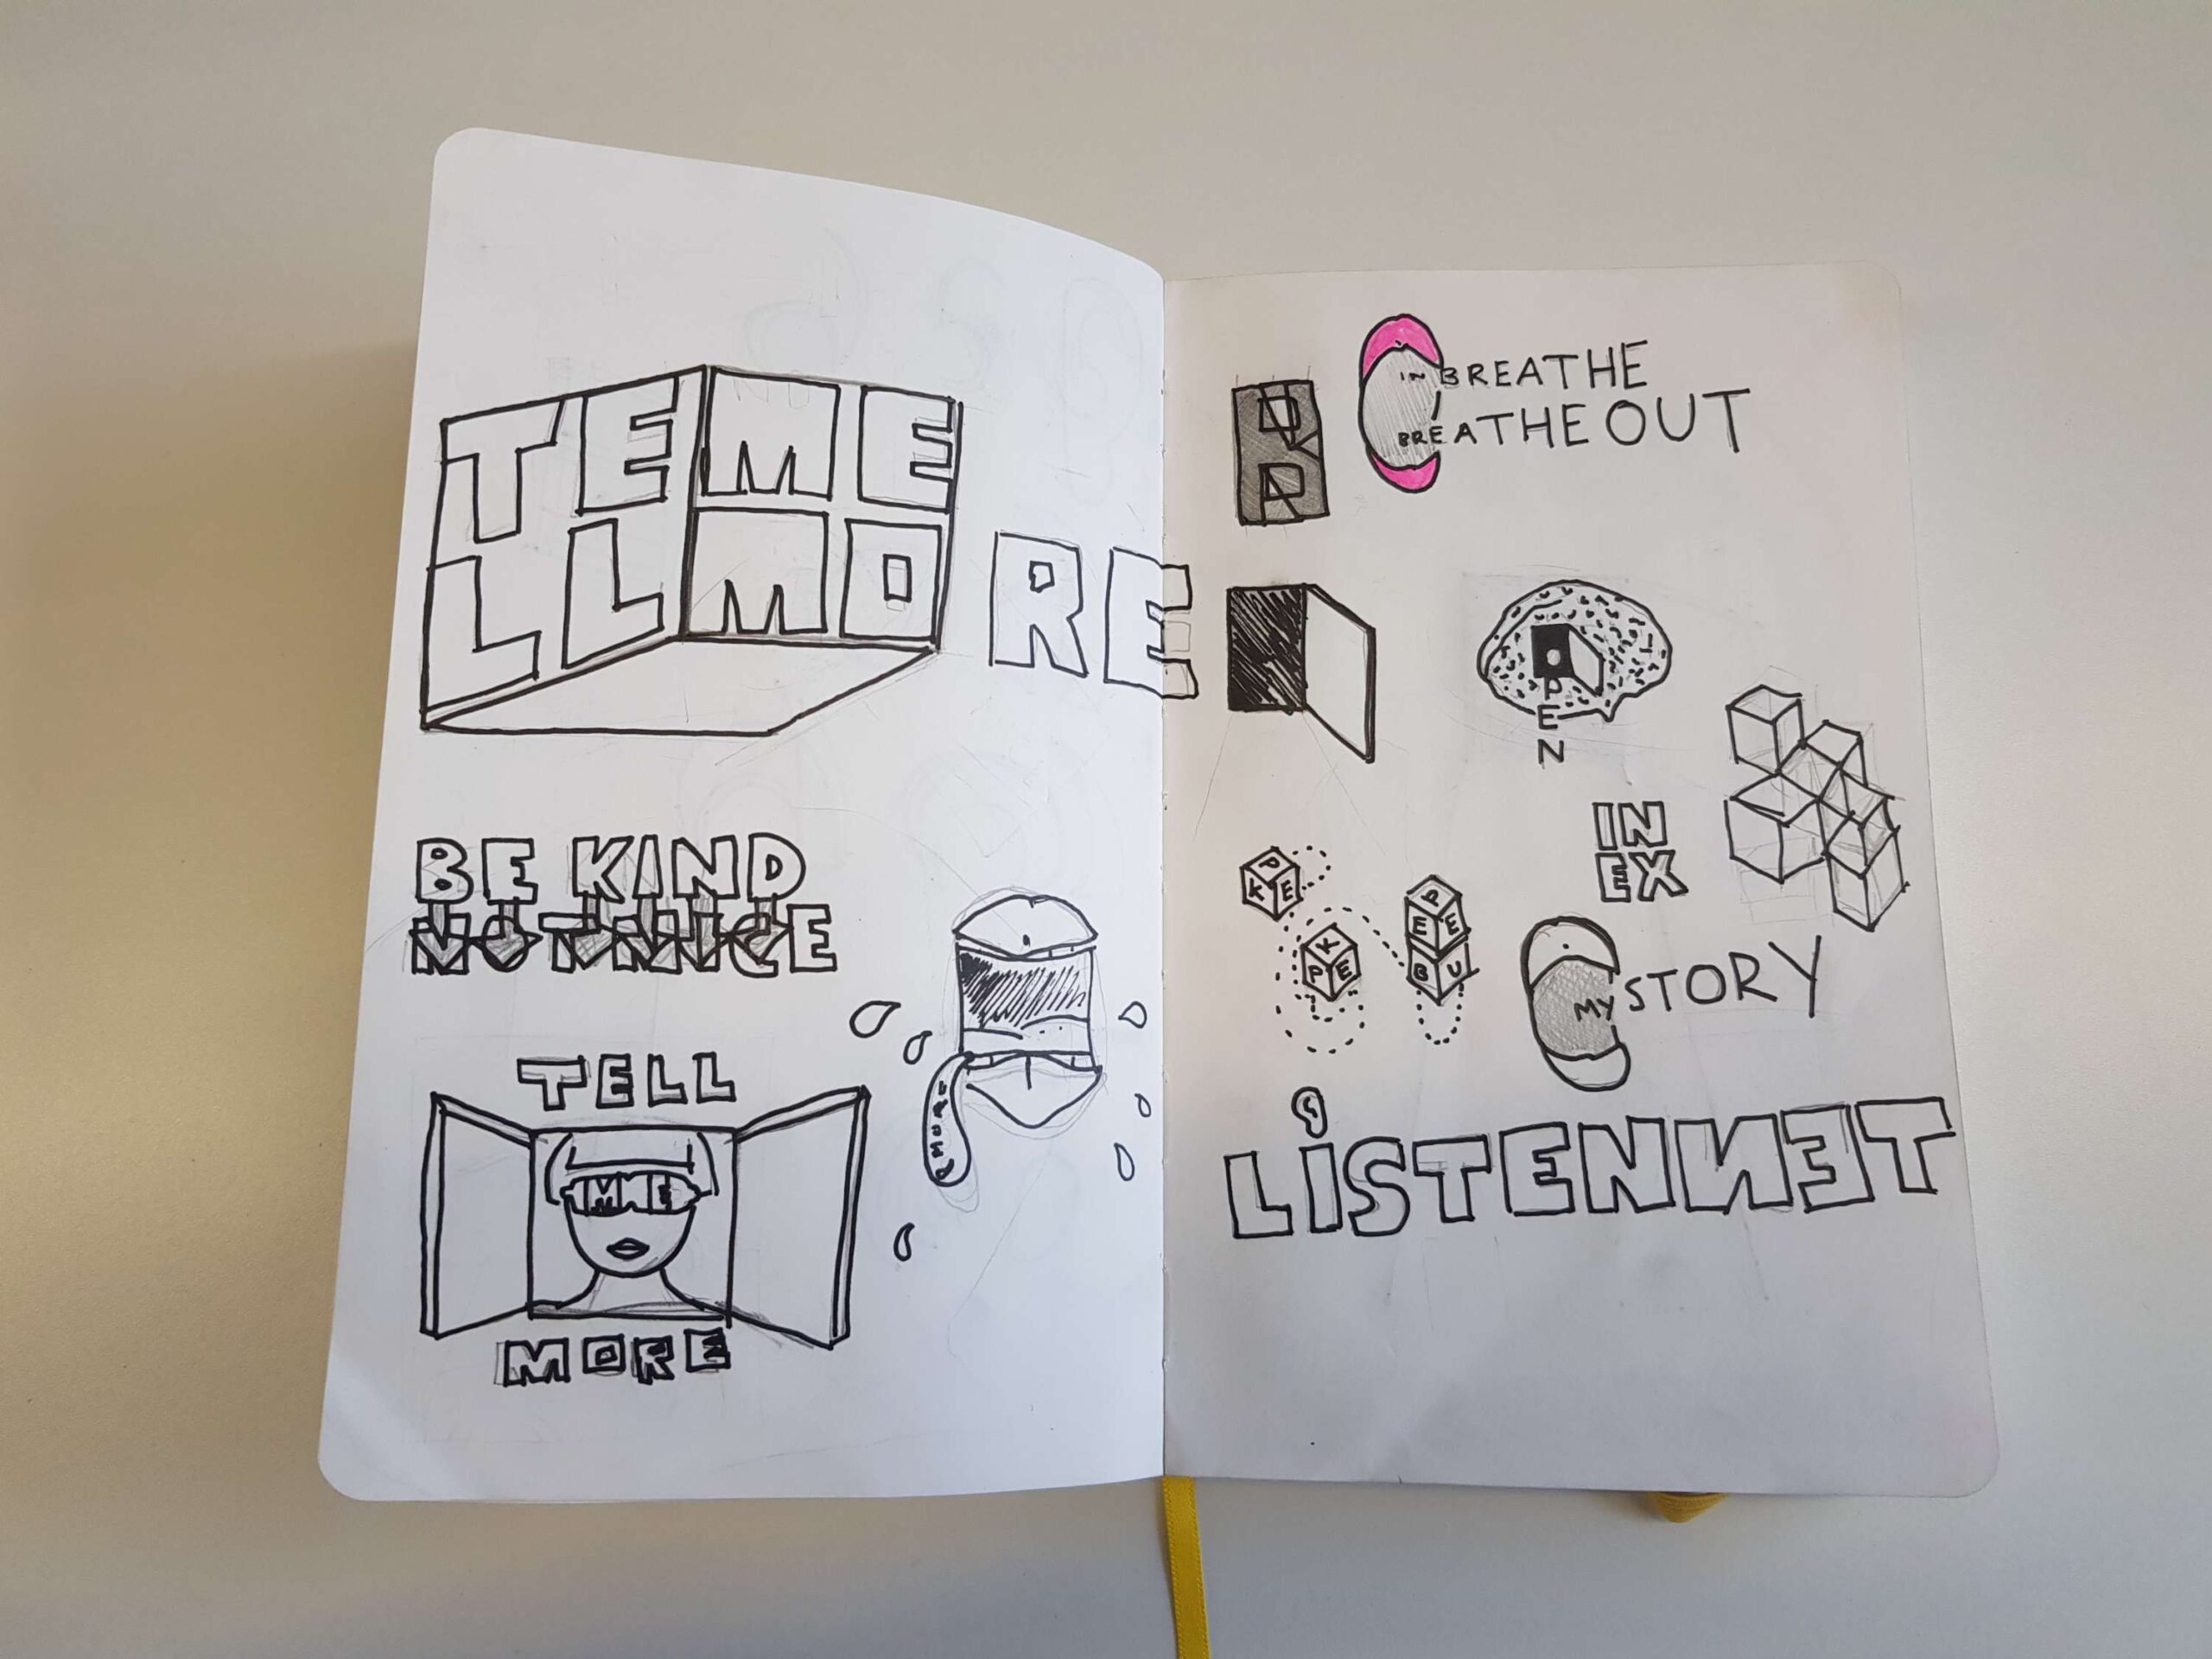 TEME
LLMORE
BE KIND
NOT NICE
TELL
ME
MORE
MORE
R
R
IN BREATHE
BREATHE OUT
OPEN
IN
EX
P
K E
K
P E
P
E E
B U
MY STORY
LISTENИƎT